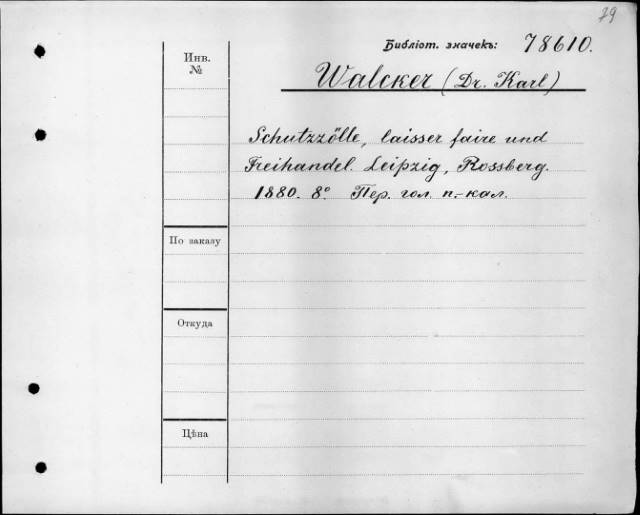 79
Библіот. значекъ: 78610.
Инв.
№
Walcker (Dr. Karl)
Schutzzölle, laisser faire und
Freihandel. Leipzig, Rossberg.
1880. 8º. Пер. гол. п.-кал.
По заказу
Откуда
Цѣна